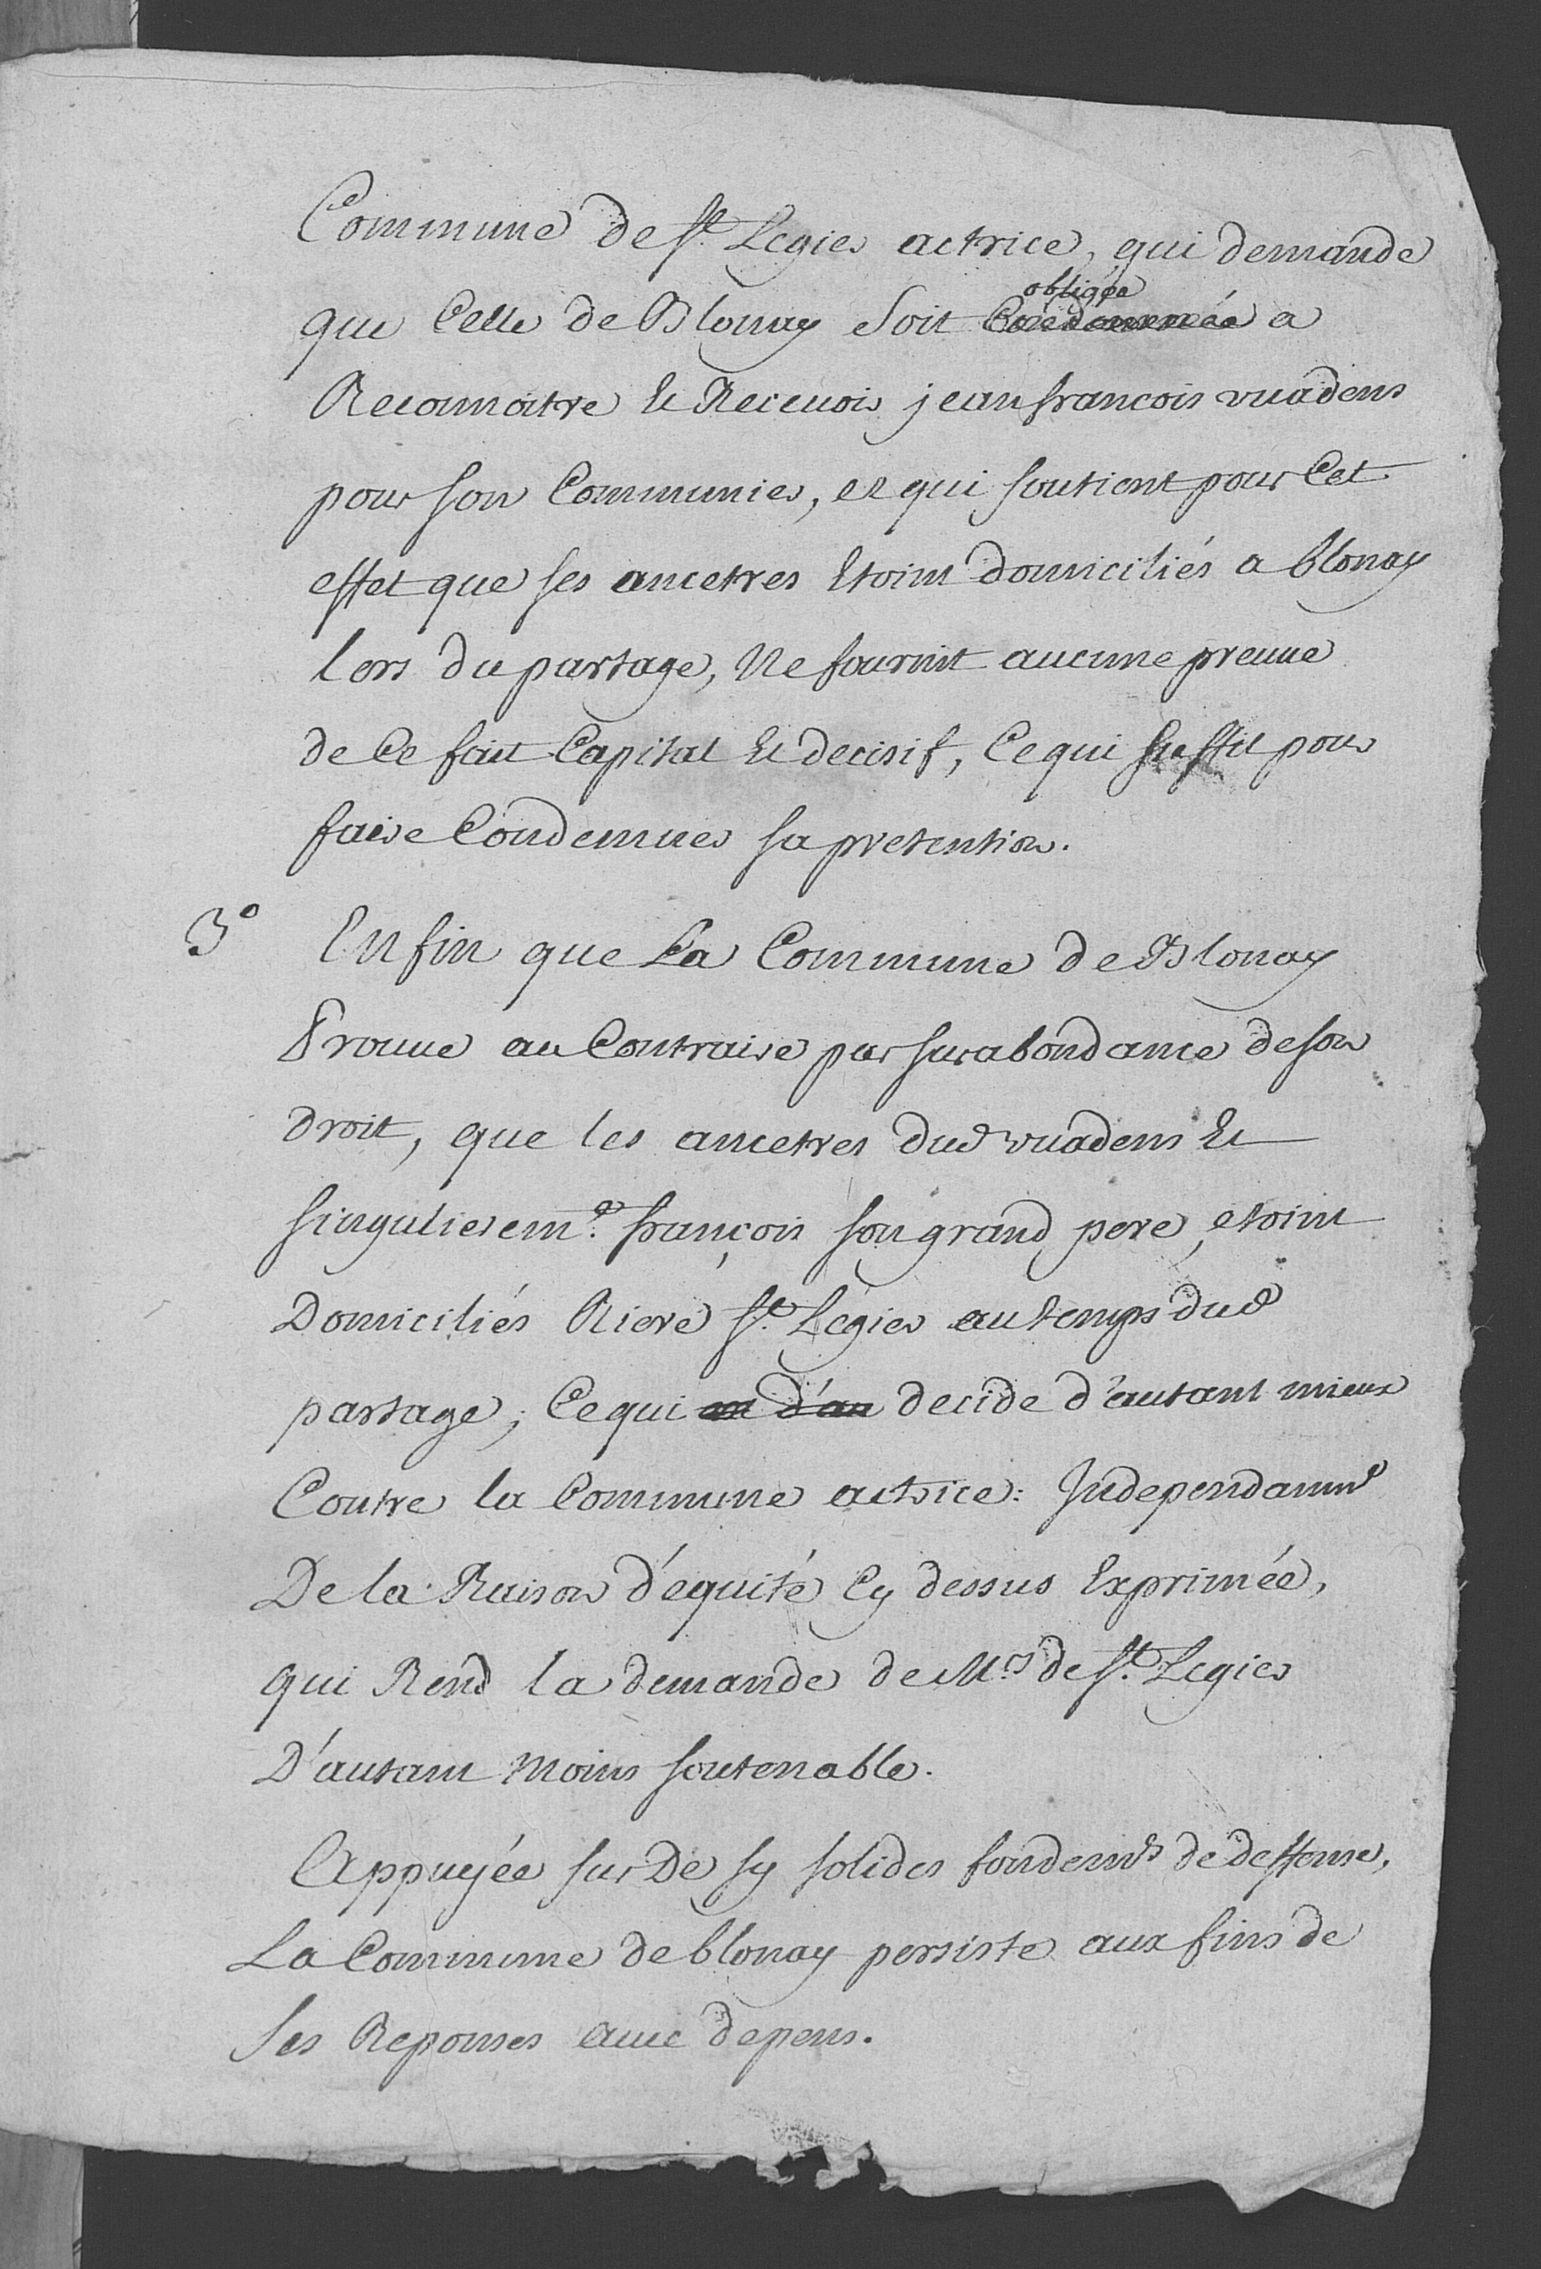 Commune de St. Legier actrice, qui demande
que Celle de Blonay Soit obligée Condamnée a
Reconnoitre Et Recevoir jean francois vuadens
pour son Communier, et qui soutient pour Cet
effet que ses ancetres Etoint domiciliés a blonay
lors du partage, Ne fournit aucune preuve
de Ce fait Capital Et decisif, Ce qui suffit pour
faire Condemner sa pretention.
3° Enfin que La Commune de Blonay
Prouve au Contraire par surabondance de son
droit, que les ancetres dud vuadens Et
singulierem.t françois son grand pere, etoint
Domiciliés Riere St. Légier au temps dud
partage; Ce qui en d'au decide d'autant mieux
Contre la Commune actrice: Independamt
De la Raison d'équité Cy dessus Exprimée,
qui Rend la demande de M.rs de St. Legier
D'autant Moins soutenable.
Appuyée sur De sy solides fondemts de deffense,
La Commune de blonay persiste aux fins de
ses Reponses avec depens.